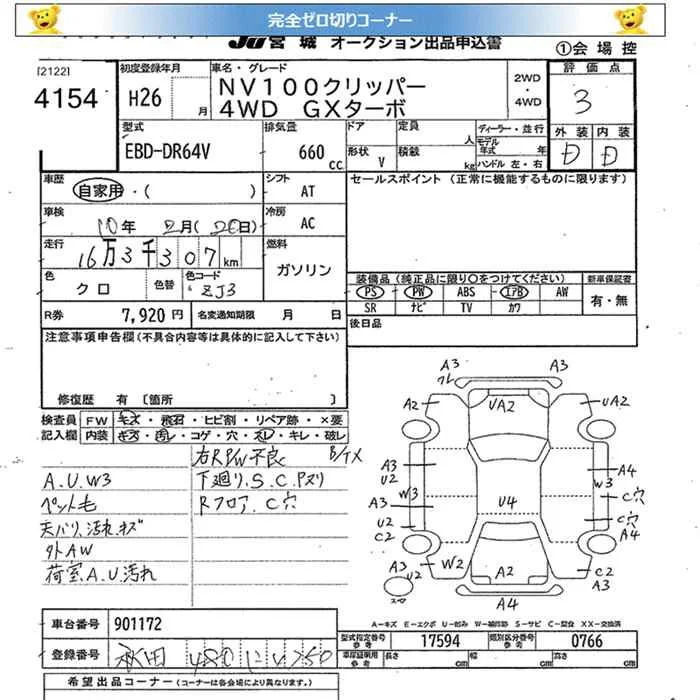 完全ゼロ切りコーナー
JU宮城 オークション出品申込書
①会場控
[2122]
4154
初度登録年月
H26 月
車名・グレード
NV100クリッパー
4WD GXターボ
2WD
・
4WD
評価点
3
型式
EBD-DR64V
排気量
660 cc
ドア
形状 V
定員 人
積載 kg
ディーラー・並行
モデル年式 年
ハンドル 左・右
外装 内装
D D
車歴
自家用・( )
シフト
AT
セールスポイント (正常に機能するものに限ります)
車検
10年 2月(20日)
冷房
AC
走行
16万3千307km
燃料
ガソリン
色
クロ
色替
色コード
ZJ3
装備品 (純正品に限り○をつけてください)
新車保証書
PS PW ABS エアB AW
有・無
SR ナビ TV カワ
R券 7,920円
名変通知期限 月 日
後日品
注意事項申告欄(不具合内容等は具体的に記入して下さい)
修復歴 有 〔箇所 〕
検査員
記入欄
FW キズ・飛石・ヒビ割・リペア跡・×要
内装 キズ・汚レ・コゲ・穴・スレ・キレ・破レ
右RPW不良
A.U.W3
下廻り.S.C.Pヌリ
ペット毛
Rフロア.C穴
天バリ.汚れ.キズ
外AW
荷室.A.U.汚れ
A3
A3
A2
UA2
UA2
A3
U2
W3
A3
U2
C2
U4
W3
A4
C穴
C穴
A4
W2
A2
A3
U2
C2
A3
A4
スペア
A－キズ E－エクボ U－凹み W－補修跡 S－サビ C－腐食 XX－交換済
車台番号
901172
型式指定番号
参考
17594
類別区分番号
参考
0766
登録番号
秋田 480
車庫証明用
参考
長さ cm
幅 cm
高さ cm
希望出品コーナー (コーナーは各会場により異なります。)